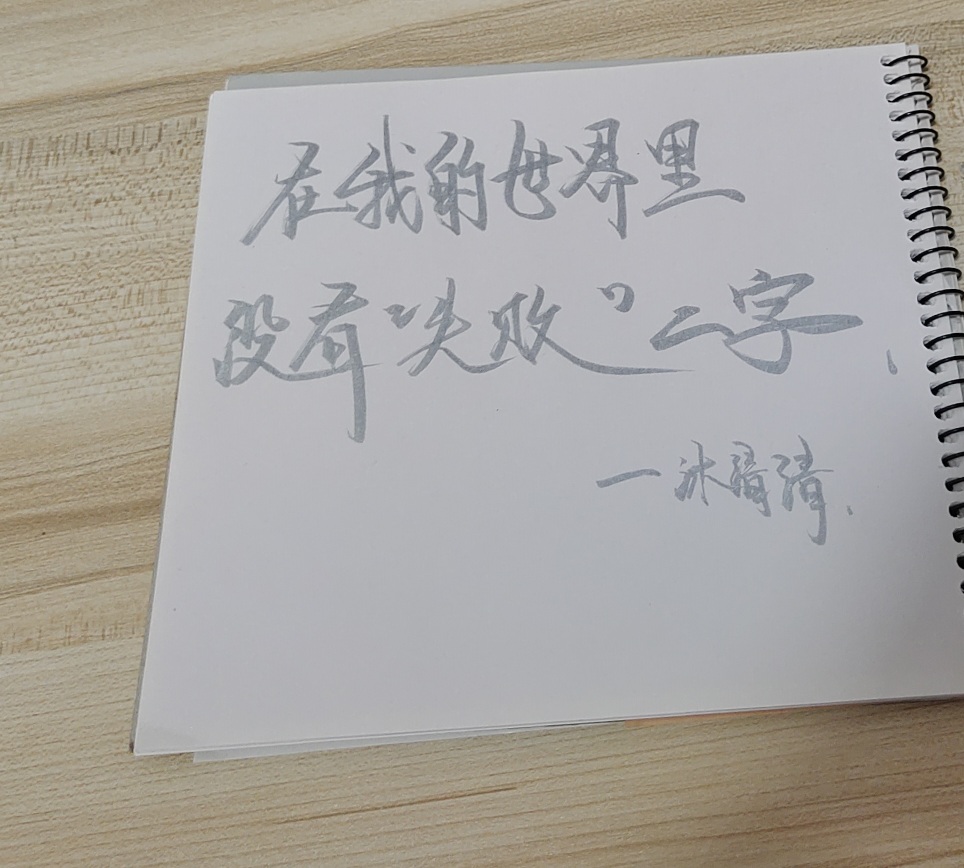 在我的世界里
没有“失败”二字.
—冰清.